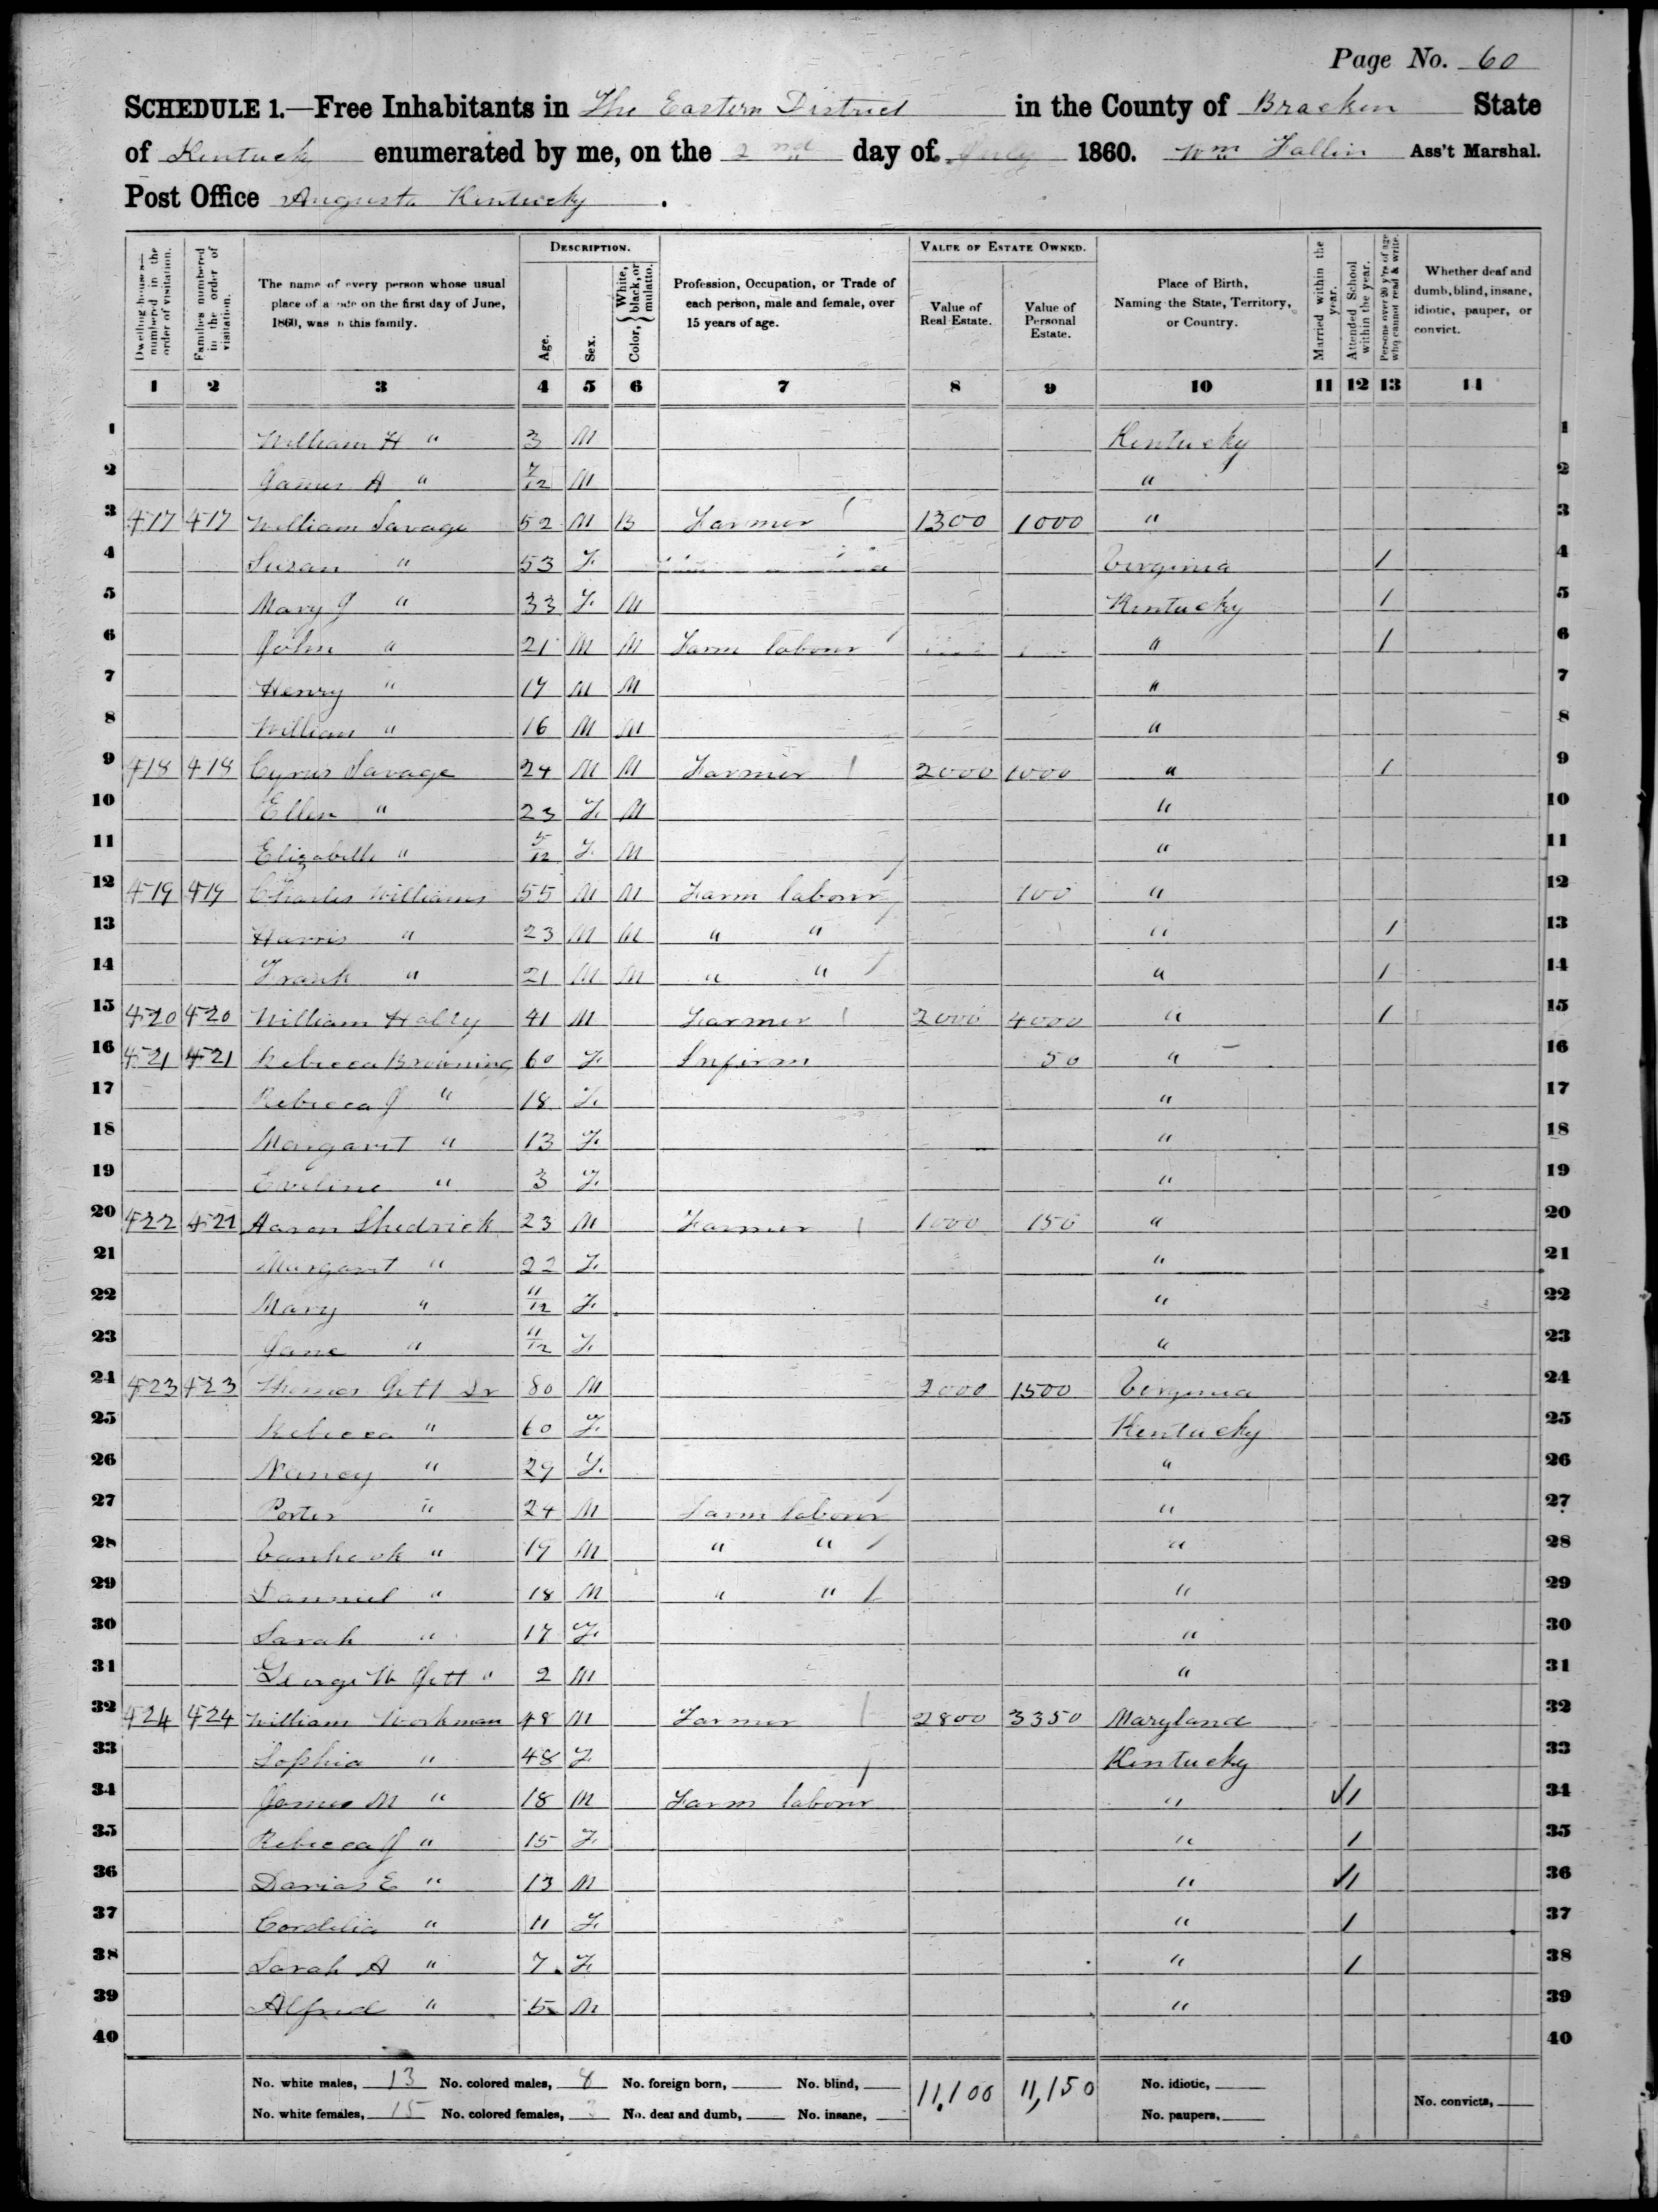 Page No. 60
SCHEDULE 1.—Free Inhabitants in The Eastern District in the County of Bracken State
of Kentucky enumerated by me, on the 2nd day of July 1860. Wm Fallin Ass't Marshal.
Post Office Augusta Kentucky.
Dwelling houses—numbered in the order of visitation. Families numbered in the order of visitation. The name of every person whose usual place of abode on the first day of June, 1860, was in this family. DESCRIPTION. Age. Sex. Color, { White, black, or mulatto. Profession, Occupation, or Trade of each person, male and female, over 15 years of age. VALUE OF ESTATE OWNED. Value of Real Estate. Value of Personal Estate. Place of Birth, Naming the State, Territory, or Country. Married within the year. Attended School within the year. Persons over 20 y'rs of age who cannot read & write. Whether deaf and dumb, blind, insane, idiotic, pauper, or convict.
1 2 3 4 5 6 7 8 9 10 11 12 13 14
1 William H " 3 M Kentucky 1
2 James A " 7/12 M " 2
3 417 417 William Savage 52 M B Farmer 1300 1000 " 3
4 Susan " 53 F. Virginia / 4
5 Mary J " 33 F. M Kentucky / 5
6 John " 21 M M Farm labour " / 6
7 Henry " 19 M M " 7
8 William " 16 M M " 8
9 418 418 Cyrus Savage 24 M M Farmer 2000 1000 " / 9
10 Ellen " 23 F. M " 10
11 Elizabeth " 5/12 F. M " 11
12 419 419 Charles Williams 55 M M Farm labour 100 " 12
13 Harris " 23 M M " " " / 13
14 Frank " 21 M M " " " / 14
15 420 420 William Habley 41 M Farmer 2000 4000 " / 15
16 421 421 Rebecca Browning 60 F. Infirm 50 " 16
17 Rebecca J " 18 F. " 17
18 Margaret " 13 F. " 18
19 Eveline " 3 F. " 19
20 422 421 Aaron Shedrick 23 M Farmer 1000 150 " 20
21 Margaret " 22 F. " 21
22 Mary " 11/12 F. " 22
23 Jane " 11/12 F. " 23
24 423 423 Thomas Jett Sr 80 M 2000 1500 Virginia 24
25 Rebecca " 60 F. Kentucky 25
26 Nancy " 29 F. " 26
27 Porter " 24 M Farm labour " 27
28 Vanhook " 19 M " " " 28
29 Danniel " 18 M " " " 29
30 Sarah " 17 F. " 30
31 George W Jett " 2 M " 31
32 424 424 William Workman 48 M Farmer 2800 3350 Maryland 32
33 Sophia " 48 F. Kentucky 33
34 James M " 18 M Farm labour " / 34
35 Rebecca J " 15 F. " / 35
36 Darias E " 13 M " / 36
37 Cordelia " 11 F. " / 37
38 Sarah A " 7 F. " / 38
39 Alfred " 5 M " 39
40 40
No. white males, 13 No. colored males, 8 No. foreign born, No. blind, 11,100 11,150 No. idiotic,
No. white females, 15 No. colored females, 3 No. deaf and dumb, No. insane, No. paupers, No. convicts,